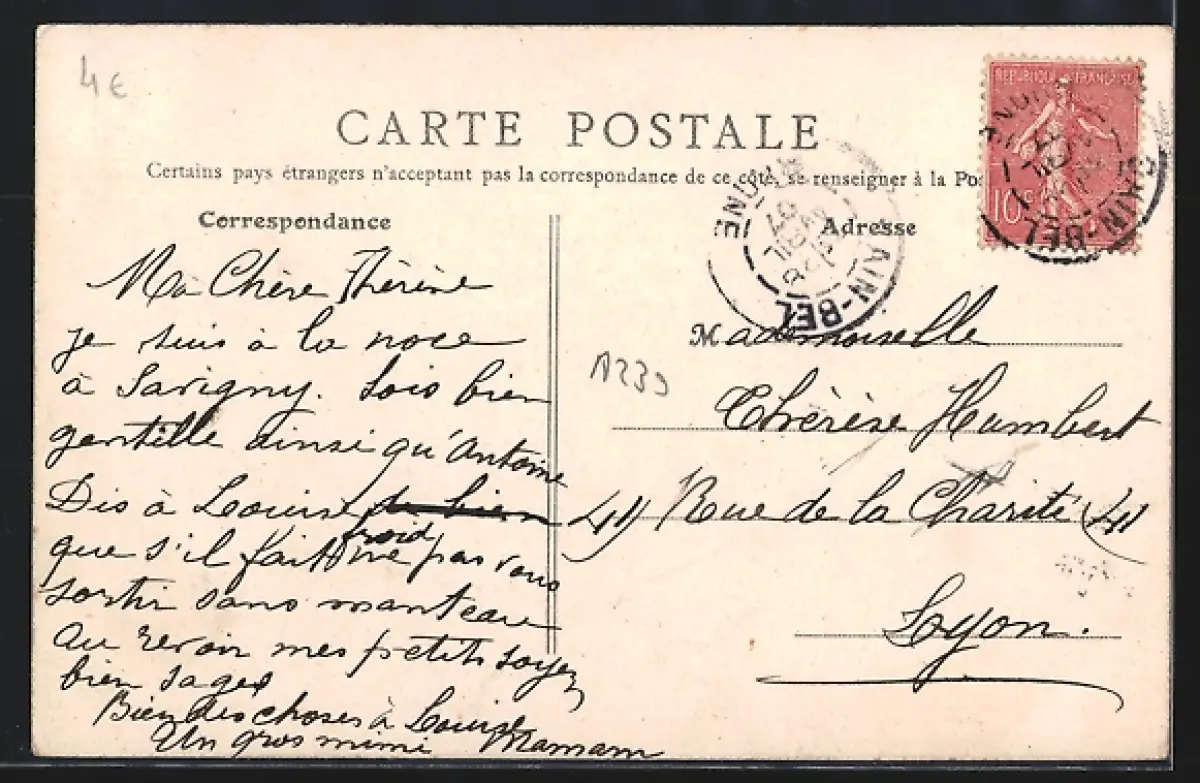 4€
CARTE POSTALE
Certains pays étrangers n'acceptent pas la correspondance de ce côté, se renseigner à la Pos
Correspondance
Ma Chère Thérèse
je suis à la noce
à Savigny. Sois bien
gentille ainsi qu'Antoine
Dis à Louise de bien
froid
que s'il fait ne pas vous
sortir sans manteau
au revoir mes petits soyez
bien sages
Bien des choses à Louise
Un gros mimi Maman
Adresse
Mademoiselle
Thérèse Humbert
41) Rue de la Charité (41
Lyon.
A239
REPUBLIQUE FRANÇAISE
10c
SAIN-BEL
RHONE
AIN-BEL
RHONE